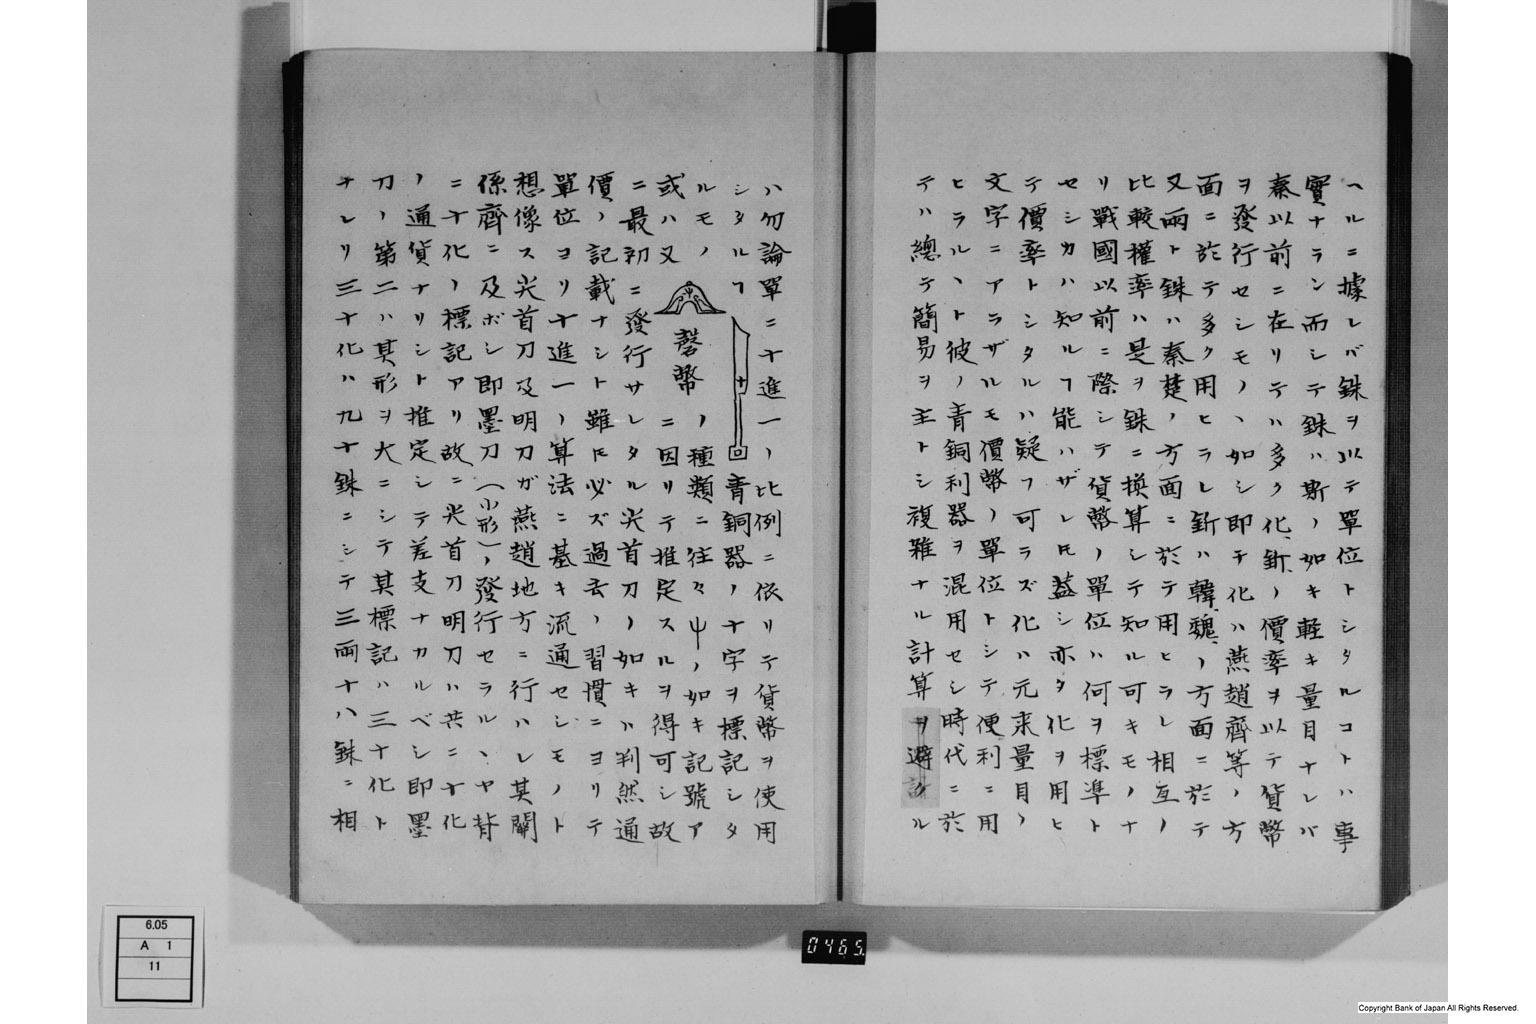 ヘルニ據レバ銖ヲ以テ單位トシタルコトハ事
實ナラン而シテ銖ハ斯ノ如キ軽キ量目ナレバ
秦以前ニ在リテハ多ク化釿ノ價率ヲ以テ貨幣
ヲ發行セシモノヽ如シ即チ化ハ燕趙齊等ノ方
面ニ於テ多ク用ヒラレ釿ハ韓魏ノ方面ニ於テ
又兩ト銖ハ秦楚ノ方面ニ於テ用ヒラレ相互ノ
比較權率ハ是ヲ銖ニ換算シテ知ル可キモノナ
リ戰國以前ニ際シテ貨幣ノ單位ハ何ヲ標準ト
セシカハ知ルヿ能ハザレ𪜈蓋シ亦タ化ヲ用ヒ
テ價率トシタルハ疑フ可ラズ化ハ元来量目ノ
文字ニアラザルモ價幣ノ單位トシテ便利ニ用
ヒラルヽト彼ノ青銅利器ヲ混用セシ時代ニ於
テハ總テ簡易ヲ主トシ複雜ナル計算ヲ避クル
ハ勿論單ニ十進一ノ比例ニ依リテ貨幣ヲ使用
シタルヿ 青銅器ノ十字ヲ標記シタ
ルモノ 磬幣ノ種類ニ往々ノ如キ記號ア
或ハ又ニ因リテ推定スルヲ得可シ故
ニ最初ニ發行サレタル尖首刀ノ如キハ判然通
價ノ記載ナシト雖𪜈必ズ過去ノ習慣ニヨリテ
單位ヨリ十進一ノ算法ニ基キ流通セシモノト
想像ス尖首刀及明刀ガ燕趙地方ニ行ハレ其關
係齊ニ及ボシ即墨刀(小形)ノ發行セラルヽヤ背
ニ十化ノ標記アリ故ニ尖首刀明刀ハ共ニ十化
ノ通貨ナリシト推定シテ差支ナカルベシ即墨
刀ノ第二ハ其形ヲ大ニシテ其標記ハ三十化ト
ナレリ三十化ハ九十銖ニシテ三兩十八銖ニ相
6.05
A 1
11
0465.
Copyright Bank of Japan All Rights Reserved.